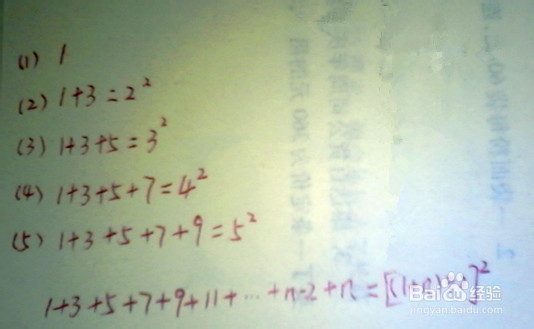 (1) 1
(2) 1+3=2²
(3) 1+3+5=3²
(4) 1+3+5+7=4²
(5) 1+3+5+7+9=5²
1+3+5+7+9+11+…+n-2+n=[(1+n)÷2]²
Baidu经验
jingyan.baidu.com